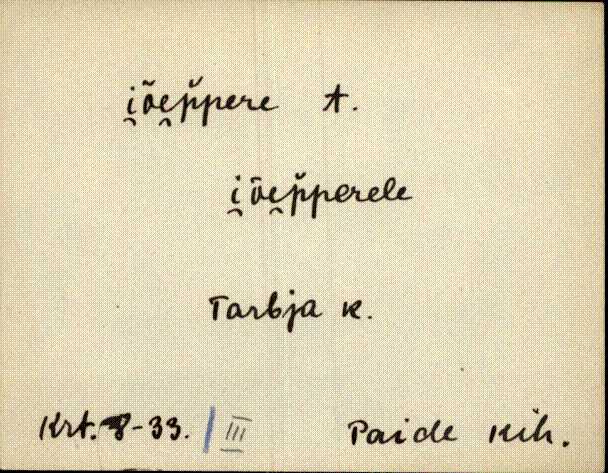 i̯õe̯p̆pere t.
i̯õe̯p̆perele
Tarbja k.
Krt. 8-33. III Paide kih.